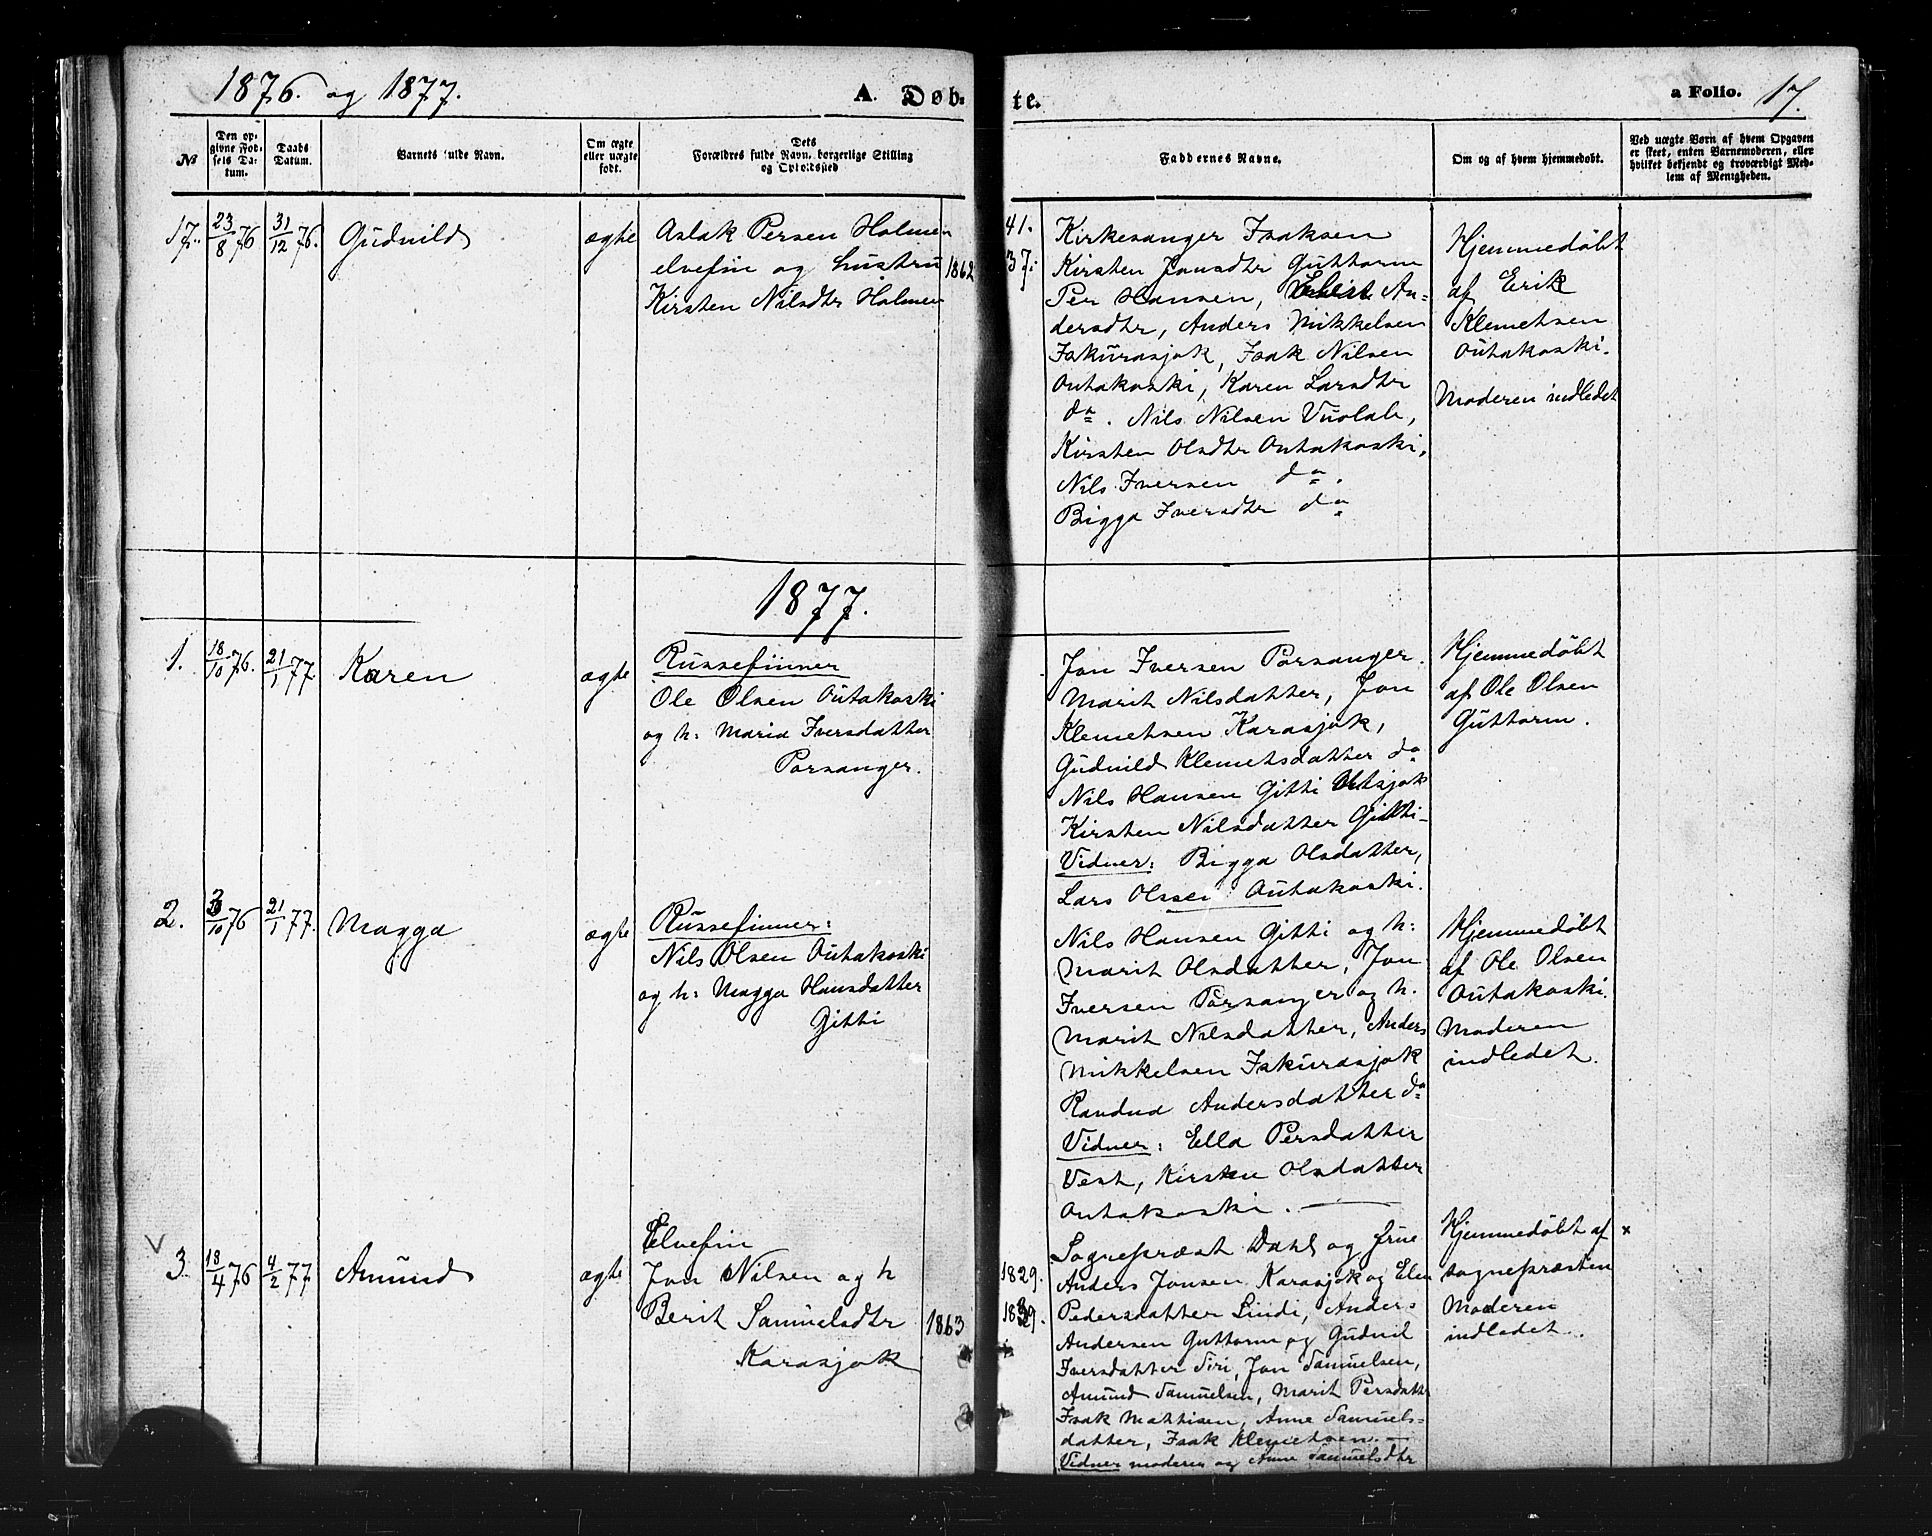 1876. og 1877.
A. Døb-
te.
a Folio. 17.
No
Den op-
givne Fød-
sels Da-
tum.
Daabs
Datum.
Barnets fulde Navn.
Om ægte
eller uægte
født.
Dets
Forældres fulde Navn, borgerlige Stilling
og Opholdssted
Faddernes Navne.
Om og af hvem hjemmedøbt.
Ved uægte Børn af hvem Opgaven
er skeet, enten Barnemoderen, eller
hvilket bekjendt og troværdigt Med-
lem af Menigheden.
17. 23/8 76 31/12 76. Gudnild ægte
Aslak Persen Holmen
elvefin og hustru 1862
Kirsten Nilsdtr Holmen
41.
37.
Kirkesanger Isaksen
Kirsten Jonsdtr Guttorm
Per Hansen, An=
dersdtr, Anders Mikkelsen
Iskurasjok, Isak Nilsen
Outakoski, Karen Larsdtr
do. Nils Nilsen Vuolab,
Kirsten Olsdtr Outakoski,
Nils Iversen do.
Bigga Iversdtr do
Hjemmedøbt
af Erik
Klemetsen
Outakoski.
Moderen indledet
1877.
1. 18/10 76. 21/1 77. Karen ægte
Russefinner
Ole Olsen Outakoski
og h: Maria Iversdatter
Porsanger.
Jon Iversen Porsanger.
Marit Nilsdatter, Jon
Klemetsen Karasjok,
Gudnild Klemetsdatter do
Nils Hansen Gitti Utsjok
Kirsten Nilsdatter Gitti-
Vidner: Bigga Olsdatter,
Lars Olsen Outakoski.
Hjemmedøbt
af Ole Olsen
Guttorm.
2. /10 76 21/1 77. Magga ægte
Russefinner:
Nils Olsen Outakoski
og h: Magga Hansdatter
Gitti
Nils Hansen Gitti og h:
Marit Olsdatter, Jon
Iversen Porsanger og h.
Marit Nilsdatter, Anders
Mikkelsen Iskurasjok
Randna Andersdatter do
Vidner: Ella Persdatter
Vest, Kirsten Olsdatter
Outakoski.
Hjemmedøbt
af Ole Olsen
Outakoski.
Moderen
indledet.
V 3. 18/4 76 4/2 77 Amund ægte
Elvefin
Jon Nilsen og h
Berit Samuelsdtr 1863
Karasjok
1829.
1839.
Sognepræst Dahl og frue
Anders Jonsen Karasjok og Elen
Pedersdatter Lindi, Anders
Andersen Guttorm og Gudnil
Iversdatter Siri, Jon Samuelsen,
Amund Samuelsen, Marit Persdatter
Isak Mathisen, Anne Samuels=
datter, Isak Klemetsen.
Vidner moderen og Anne Samuelsdtr
Hjemmedøbt af x
sognepræsten
Moderen
indledet.